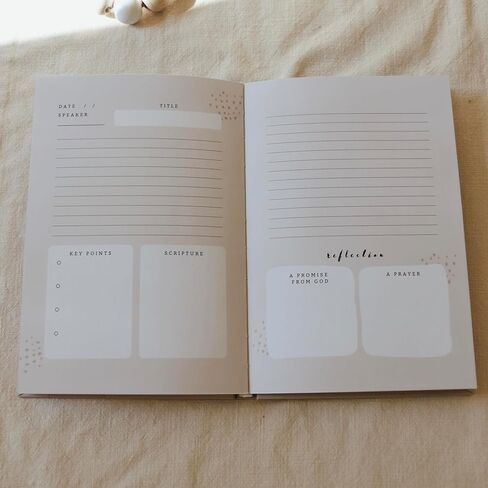 DATE / /
TITLE
SPEAKER
KEY POINTS
SCRIPTURE
reflection
A PROMISE
FROM GOD
A PRAYER